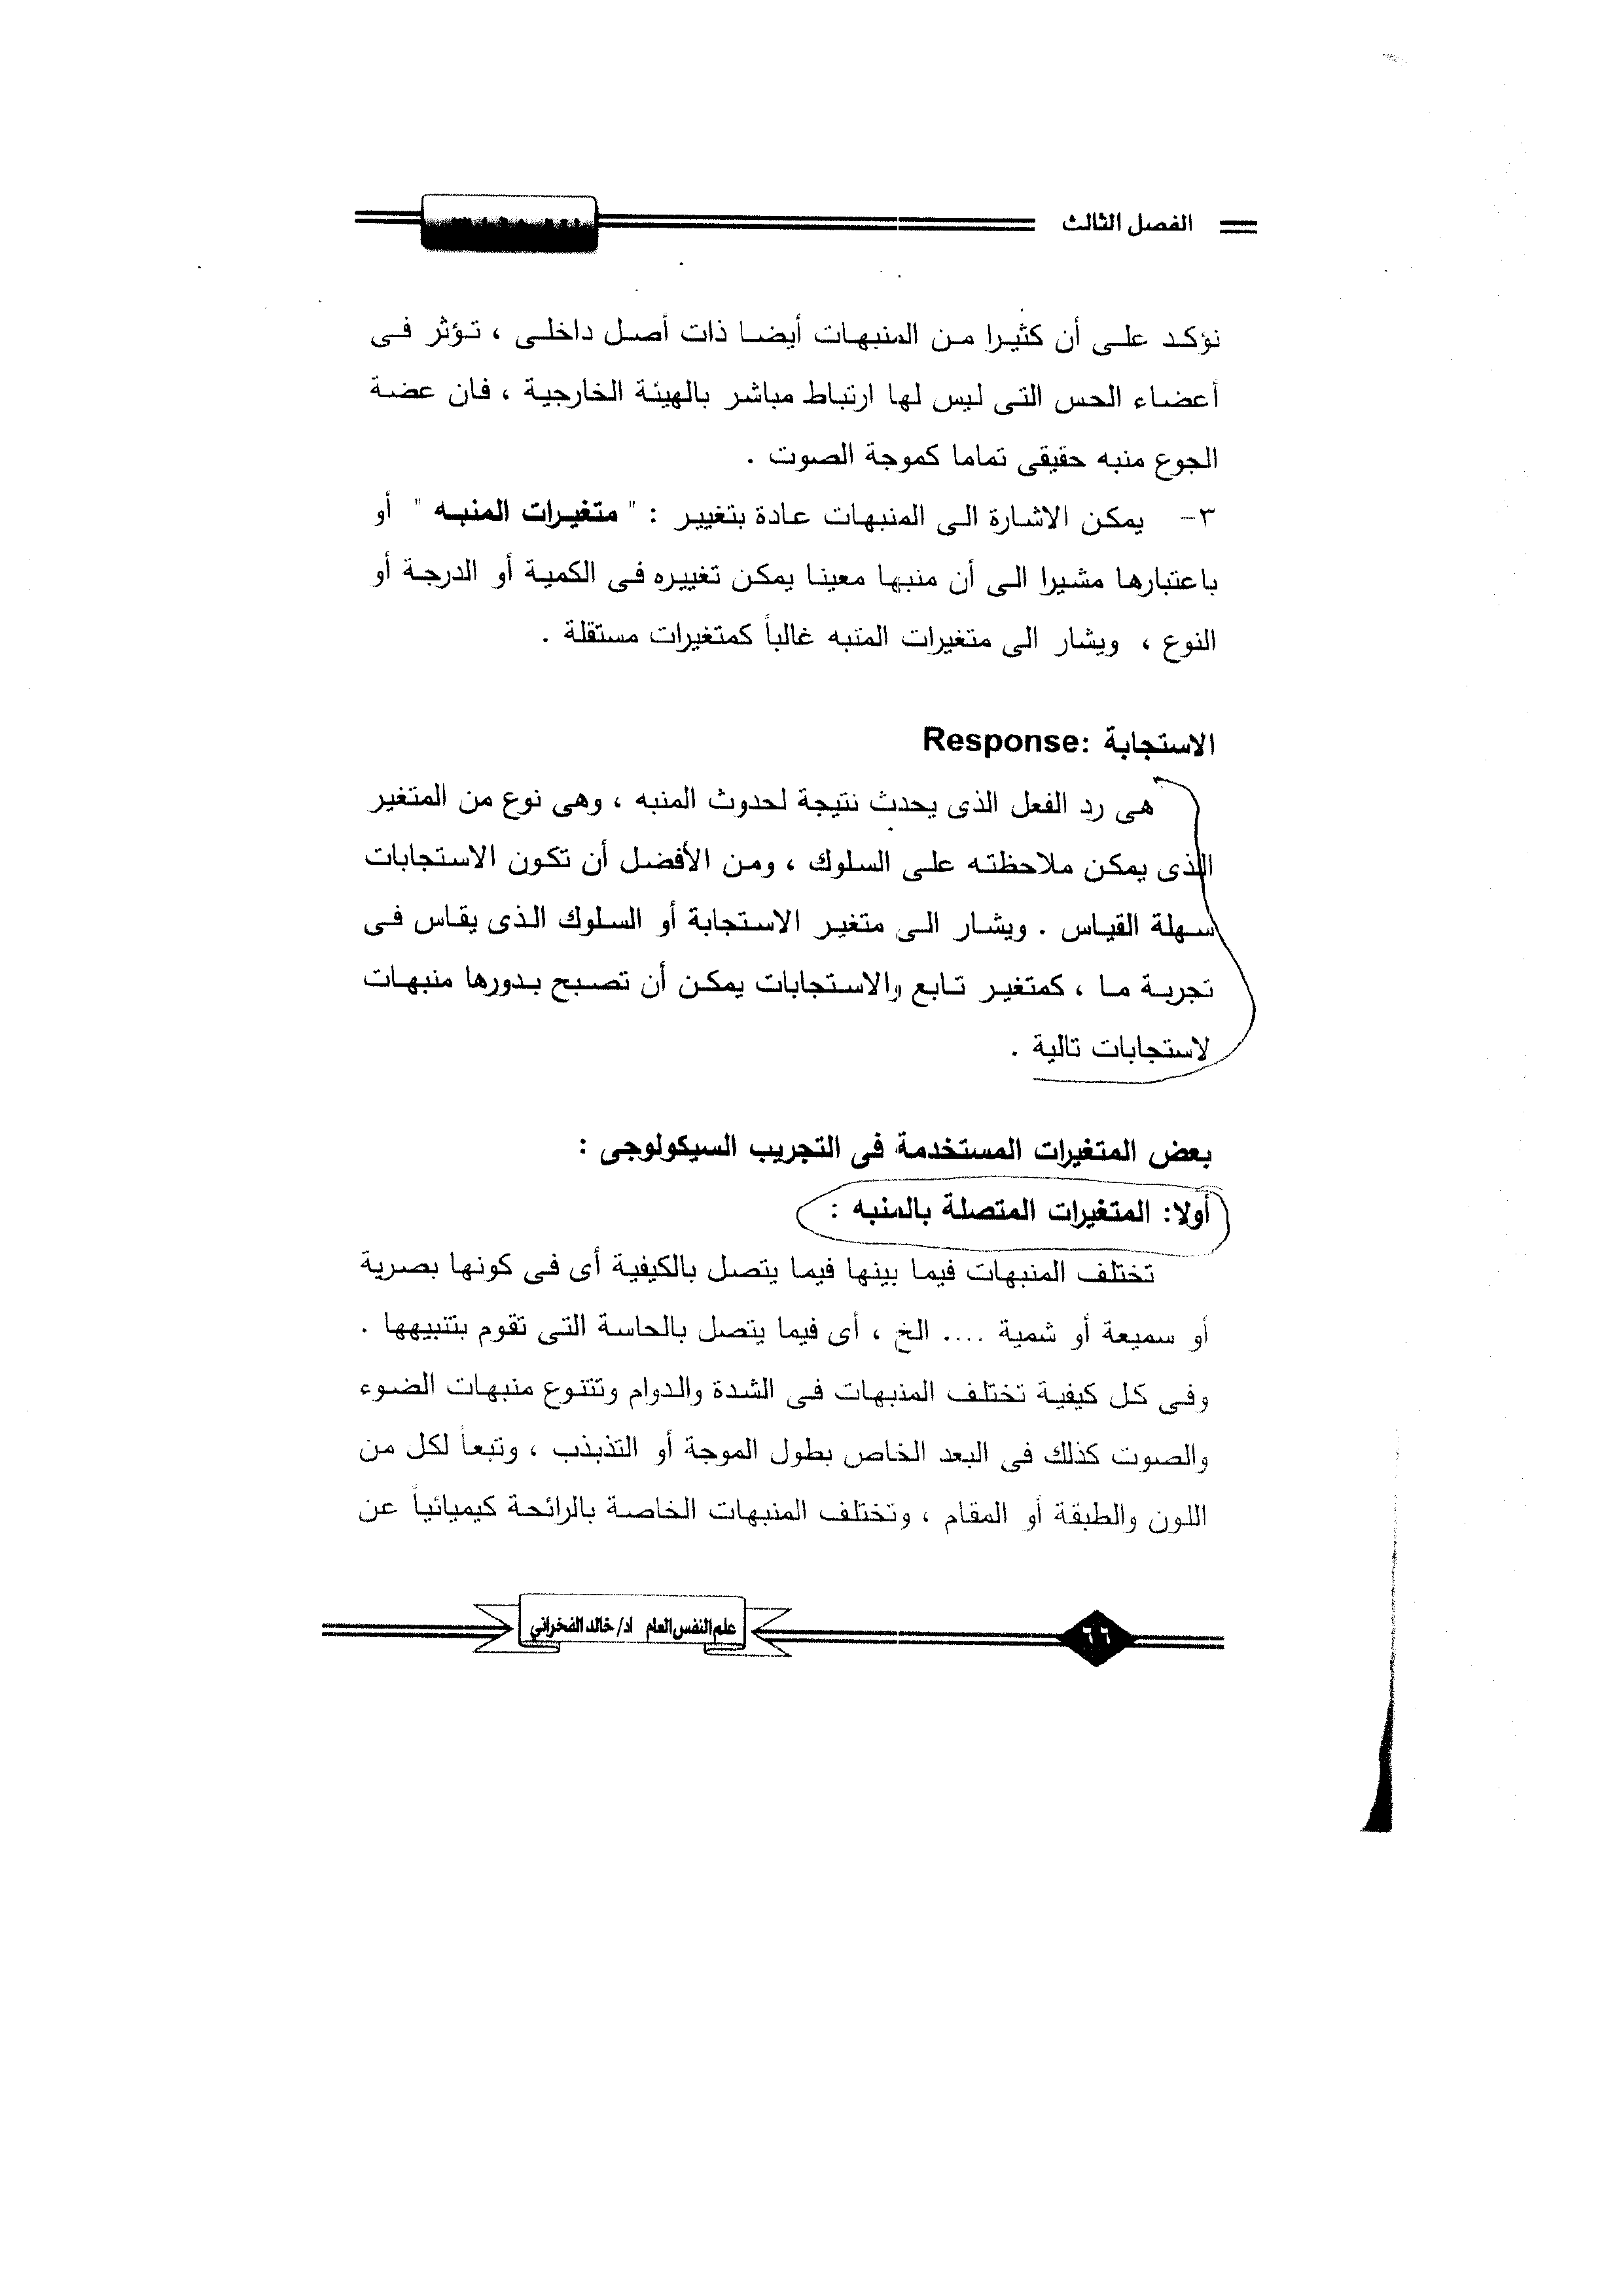 الفصل الثالث
نؤكد على أن كثيرا من المنبهات أيضا ذات أصل داخلى ، تؤثر فى
أعضاء الحس التى ليس لها ارتباط مباشر بالهيئة الخارجية ، فان عضة
الجوع منبه حقيقى تماما كموجة الصوت .
٣- يمكن الاشارة الى المنبهات عادة بتغيير : " متغيرات المنبه " أو
باعتبارها مشيرا الى أن منبها معينا يمكن تغييره فى الكمية أو الدرجة أو
النوع ، ويشار الى متغيرات المنبه غالباً كمتغيرات مستقلة .
الاستجابة :Response
هى رد الفعل الذى يحدث نتيجة لحدوث المنبه ، وهى نوع من المتغير
الذى يمكن ملاحظته على السلوك ، ومن الأفضل أن تكون الاستجابات
سهلة القياس . ويشار الى متغير الاستجابة أو السلوك الذى يقاس فى
تجربة ما ، كمتغير تابع والاستجابات يمكن أن تصبح بدورها منبهات
لاستجابات تالية .
بعض المتغيرات المستخدمة فى التجريب السيكولوجى :
أولا: المتغيرات المتصلة بالمنبه :
تختلف المنبهات فيما بينها فيما يتصل بالكيفية أى فى كونها بصرية
أو سميعة أو شمية .... الخ ، أى فيما يتصل بالحاسة التى تقوم بتنبيهها .
وفى كل كيفية تختلف المنبهات فى الشدة والدوام وتتنوع منبهات الضوء
والصوت كذلك فى البعد الخاص بطول الموجة أو التذبذب ، وتبعاً لكل من
اللون والطبقة أو المقام ، وتختلف المنبهات الخاصة بالرائحة كيميائياً عن
علم النفس العام اد/ خالد الفخراني
٦٦